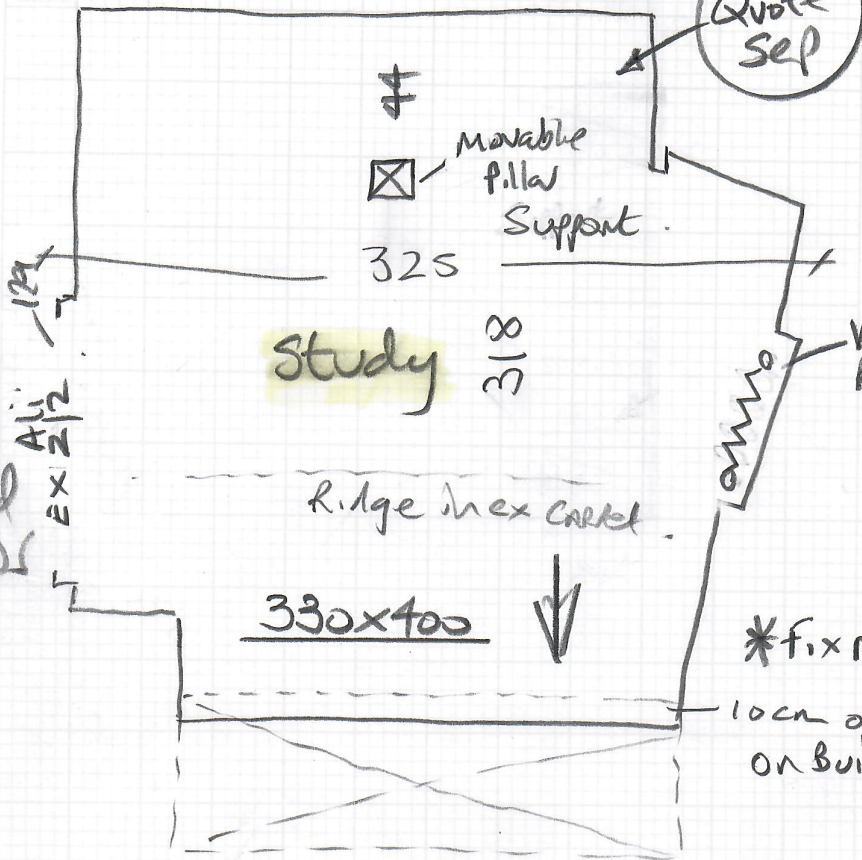 Quote
Sep
Movable
Pillar
Support.
325
129
Study
318
Ali
EX 212
Ridge in ex CARPet.
330x400
*Fix
10cm
on